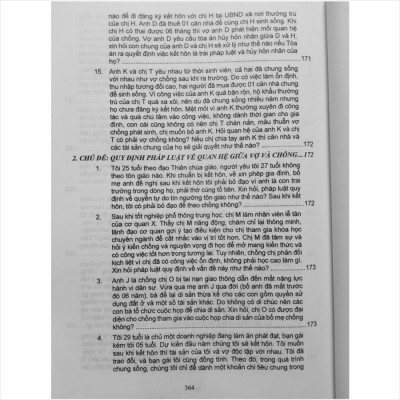 nào để đi đăng ký kết hôn với chị H tại UBND xã nơi thường
trú của chị H. Anh D đã thuê 01 căn nhà để cùng chị H sinh sống. Khi
chị H có thai được 06 tháng thì vợ anh D phát hiện mối quan hệ
của chồng. Vợ anh D yêu cầu tòa án hủy hôn nhân giữa D và H,
xin hỏi con chung của anh D và chị H sẽ xử lý như thế nào nếu Tòa
án ra quyết định hủy kết hôn trái pháp luật và hủy hôn nhân của
họ? 171
15. Anh K và chị T yêu nhau từ thời sinh viên, cả hai đã chung sống
với nhau như vợ chồng sau khi ra trường. Do có việc làm ổn định,
thu nhập tương đối cao, hai người đã mua được 01 căn nhà chung
để sinh sống. Vì công việc của anh K quá bận rộn, hộ khẩu thường
trú của chị T quá xa xôi, nên dù đã chung sống nhiều năm nhưng
họ chưa đăng ký kết hôn. Mệt mỏi vì anh K thường xuyên phải đi
công tác và quá say mê vào công việc, không dành thời gian cho gia
đình, con cái cũng không có nên chị T chán nản, mâu thuẫn vợ
chồng phát sinh, chị muốn bỏ anh K. Hỏi quan hệ của anh K và chị
T có phải vợ chồng không? Nếu chị chia tay anh K thì căn nhà và
các tài sản chung của họ sẽ giải quyết như thế nào? 172
2. CHỦ ĐỀ: QUY ĐỊNH PHÁP LUẬT VỀ QUAN HỆ GIỮA VỢ VÀ CHỒNG... 172
1. Tôi 25 tuổi theo đạo Thiên chúa giáo, người yêu tôi 27 tuổi không
theo tôn giáo nào. Khi chuẩn bị kết hôn, về xin phép gia đình, bố
mẹ anh đề nghị sau khi kết hôn tôi phải bỏ đạo vì anh là con trai
trưởng trong dòng họ, phải thờ cúng tổ tiên. Xin hỏi, pháp luật quy
định về quyền tự do tín ngưỡng, tôn giáo như thế nào? Sau khi kết
hôn, tôi có phải bỏ đạo để theo chồng không? 172
2. Sau khi tốt nghiệp phổ thông trung học, chị M làm nhân viên lễ tân
của cơ quan X. Thấy chị M năng động, chăm chỉ lại thông minh,
lãnh đạo cơ quan gợi ý tạo điều kiện cho chị tham gia khóa học
chuyên ngành để cất nhắc vào vị trí tốt hơn. Chị M đã tâm sự và
hỏi ý kiến chồng và nguyện vọng đi học để mở mang kiến thức và
có công việc tốt hơn trong tương lai. Tuy nhiên, chồng chị phản đối
kịch liệt vì chị đã có công việc ổn định, không phải học cao làm gì.
Xin hỏi pháp luật quy định về vấn đề này như thế nào? 173
3. Anh J là chồng chị O bị tai nạn giao thông dẫn đến mất năng lực
hành vi dân sự. Vừa qua mẹ anh J qua đời (bố anh đã mất trước
đó 06 năm), bà để lại di sản thừa kế cho các con gồm quyền sử dụng
đất ở và một số tài sản khác. Do không có di chúc nên các
con bà tổ chức cuộc họp để chia di sản. Xin hỏi, chị O có được đại
diện cho chồng tham gia vào cuộc họp chia di sản của bố mẹ chồng
không? 173
4. Tôi 29 tuổi là chủ một doanh nghiệp đang làm ăn phát đạt, bạn gái
kém tôi 05 tuổi. Dự kiến đầu năm chúng tôi sẽ kết hôn. Tôi muốn
sau khi kết hôn thì tài sản của tôi và vợ độc lập với nhau. Tôi đã
trao đổi, và bạn gái tôi cũng đồng ý. Theo đó, trong quá trình
chung sống, chúng tôi chỉ để dành một khoản chi tiêu chung trong
364